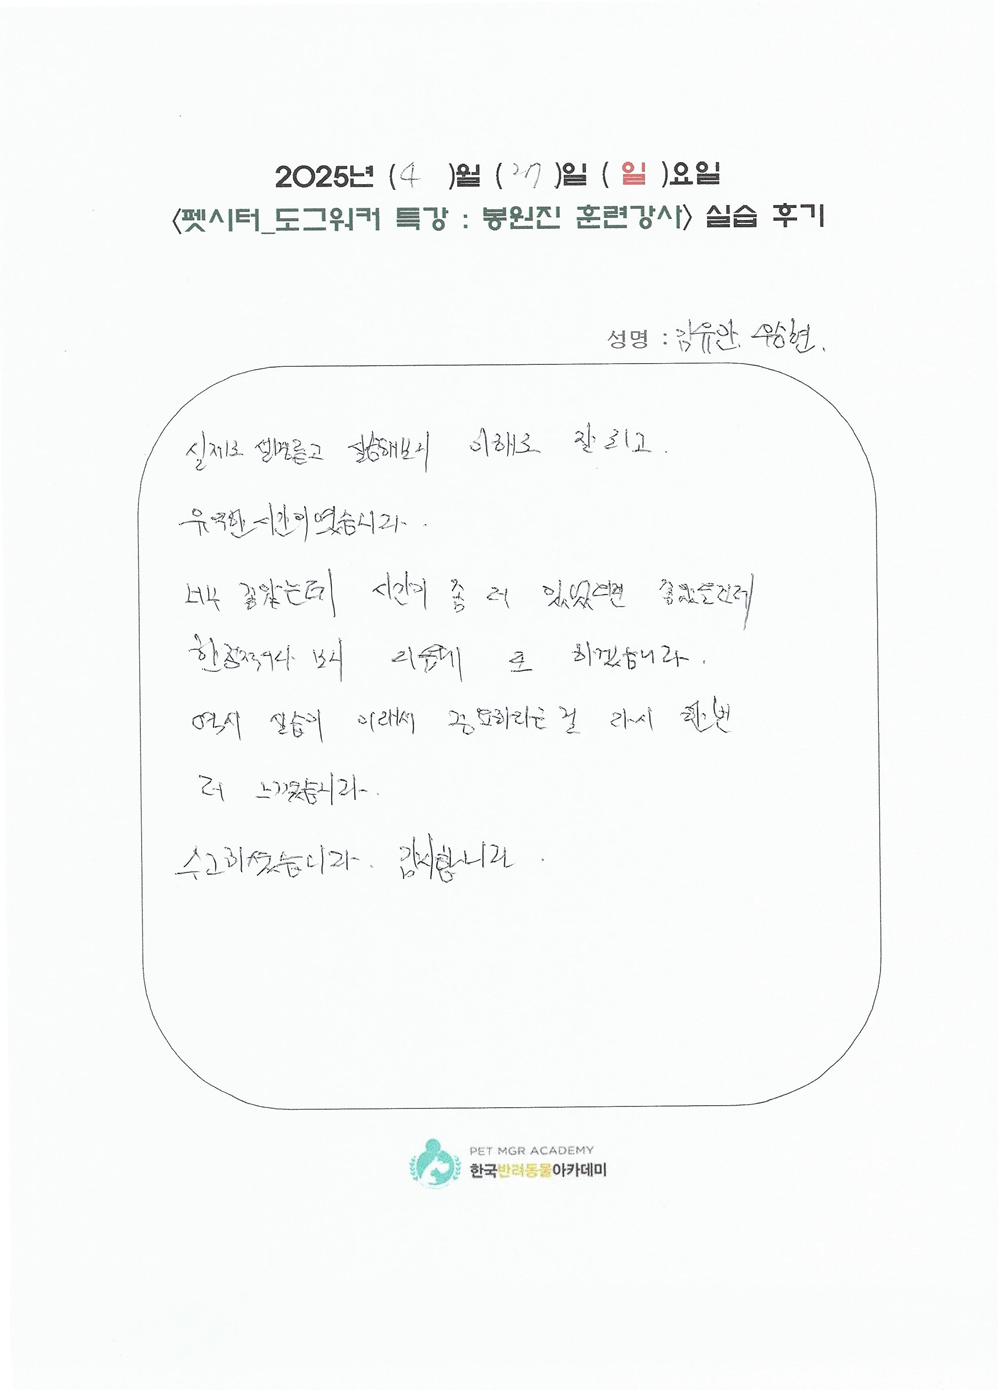 2025년 (4 )월 (27)일 ( 일 )요일
<펫시터_도그워커 특강 : 봉원진 훈련강사> 실습 후기
성명 : 김유안. 우승현.
실제로 설명듣고 실습해보니 이해도 잘 되고.
유익한 시간이였습니다.
너무 좋았는데 시간이 좀 더 있었으면 좋았을건데
보니 다음에 또 하겠습니다.
역시 실습이 이래서 중요하다는 걸 다시 한번
더 느꼈습니다.
수고하셨습니다. 감사합니다.
PET MGR ACADEMY
한국반려동물아카데미